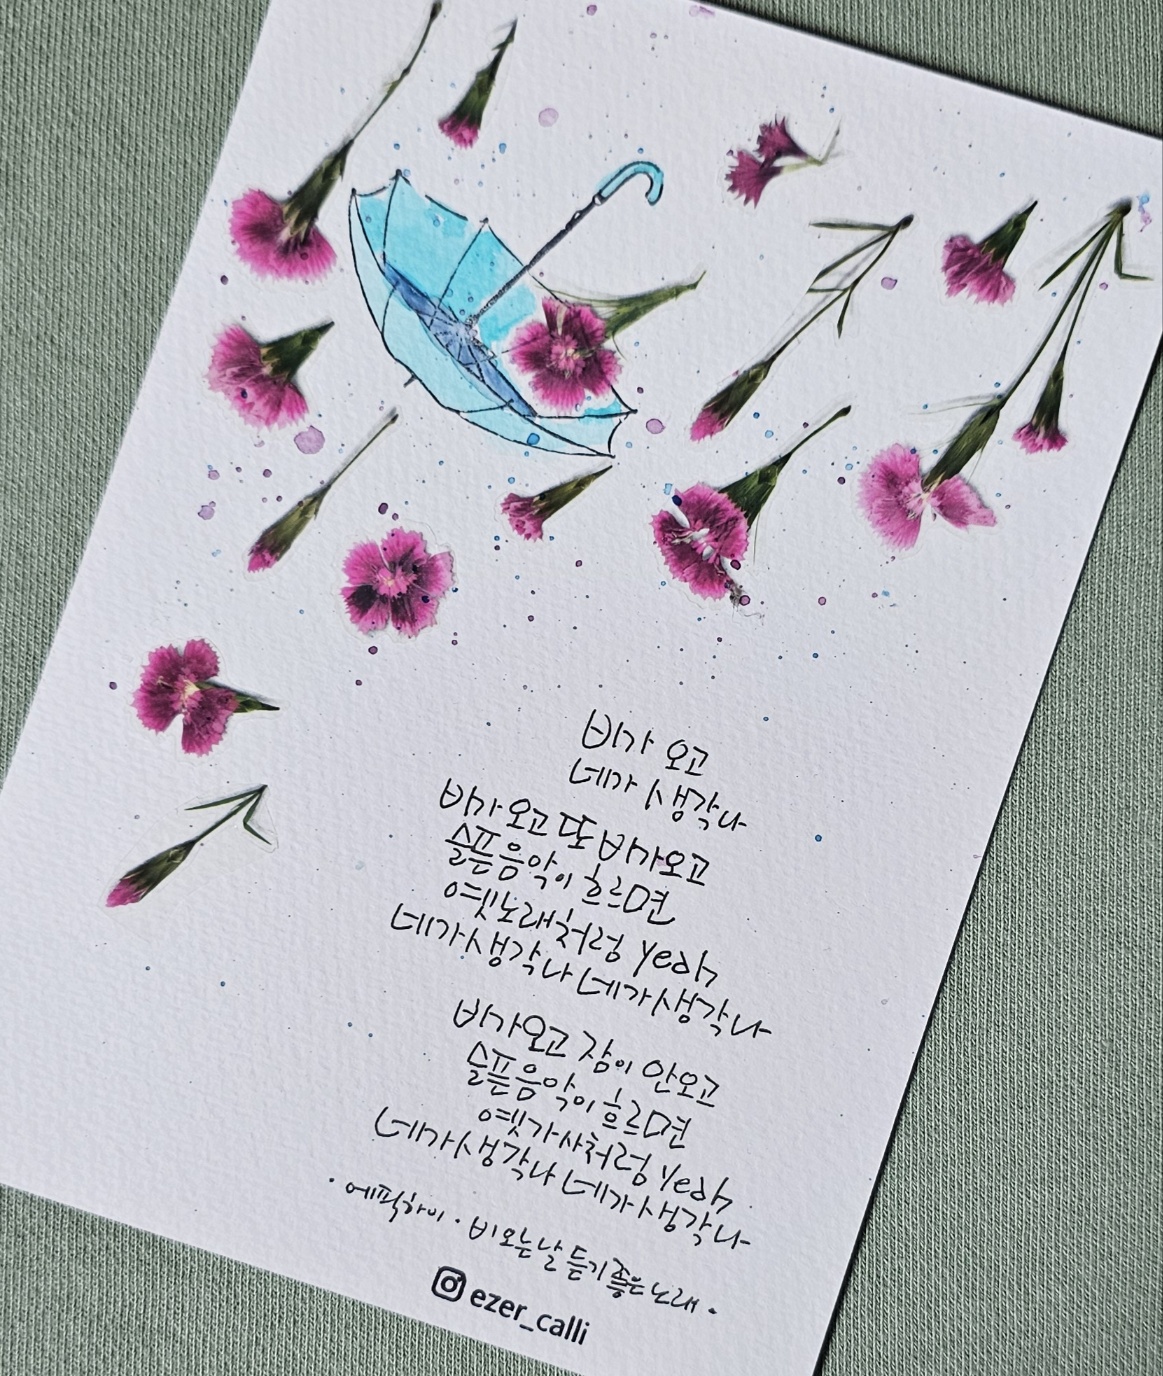 비가 오고
네가 생각나
비가 오고 또 비가 오고
슬픈 음악이 흐르면
옛 노래처럼 yeah
네가 생각나 네가 생각나
비가 오고 잠이 안 오고
슬픈 음악이 흐르면
옛 가사처럼 yeah
네가 생각나 네가 생각나
· 에픽하이 · 비오는 날 듣기 좋은 노래 ·
ezer_calli